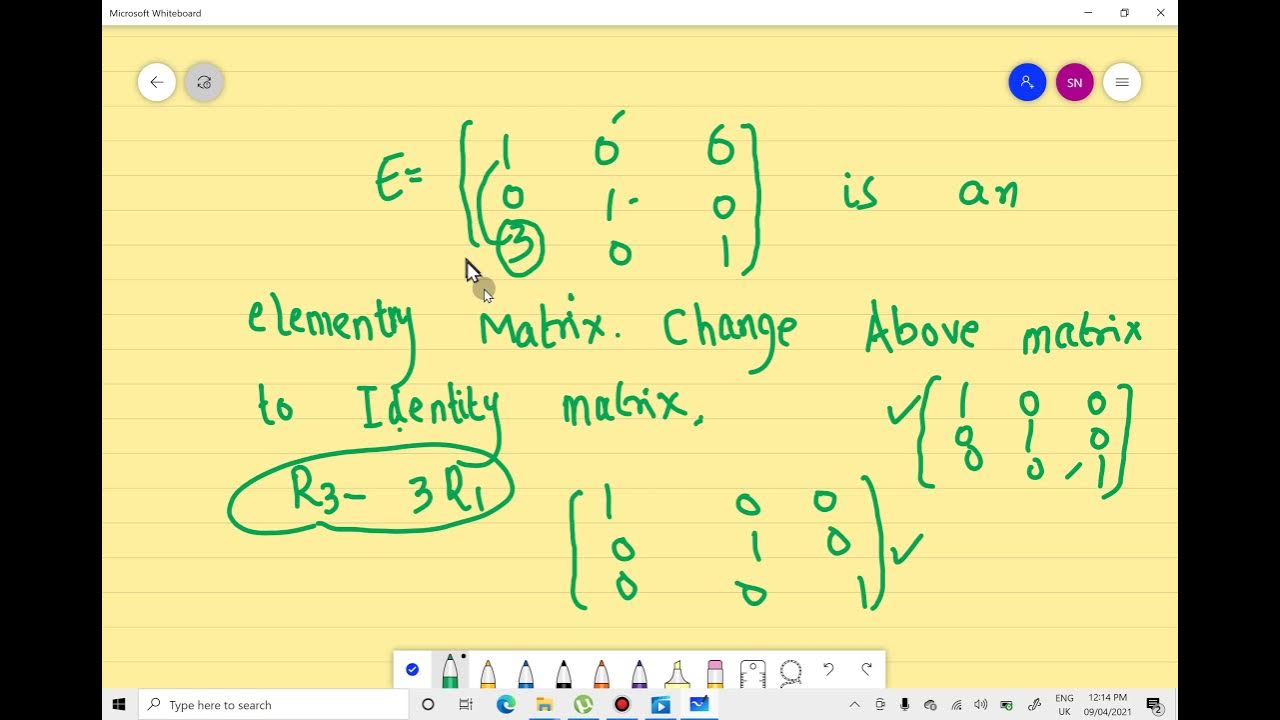 Microsoft Whiteboard
SN
E= [ 1 0 0
0 1 0
3 0 1 ] is an
elementry Matrix. Change Above matrix
to Identity matrix,
[ 1 0 0
0 1 0
0 0 1 ]
R3 - 3R1
[ 1 0 0
0 1 0
0 0 1 ]
Type here to search
ENG
UK
12:14 PM
09/04/2021
2